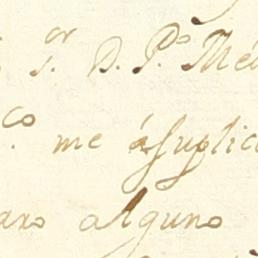 S.ʳ D. P.º Mé
co me á suplic
aro alguno